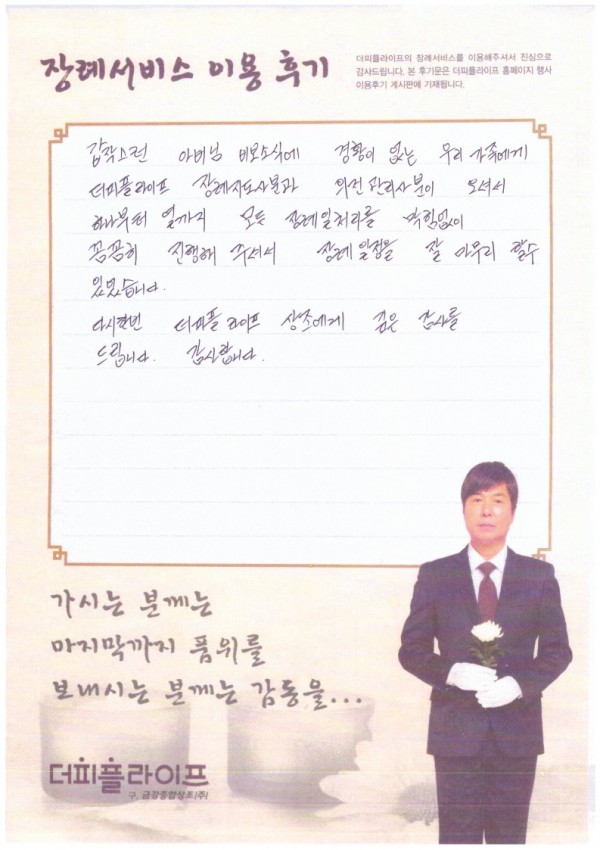 장례서비스 이용 후기
더피플라이프의 장례서비스를 이용해주셔서 진심으로
감사드립니다. 본 후기문은 더피플라이프 홈페이지 행사
이용후기 게시판에 기재됩니다.
갑작스런 아버님 비보소식에 경황이 없는 우리 가족에게
더피플라이프 장례지도사분과 의전관리사분이 오셔서
하나부터 열까지 모든 장례일처리를 막힘없이
꼼꼼히 진행해 주셔서 장례일정을 잘 마무리 할수
있었습니다.
다시한번 더피플라이프 상조에게 깊은 감사를
드립니다. 감사합니다.
가시는 분께는
마지막까지 품위를
보내시는 분께는 감동을...
더피플라이프
구, 금강종합상조(주)